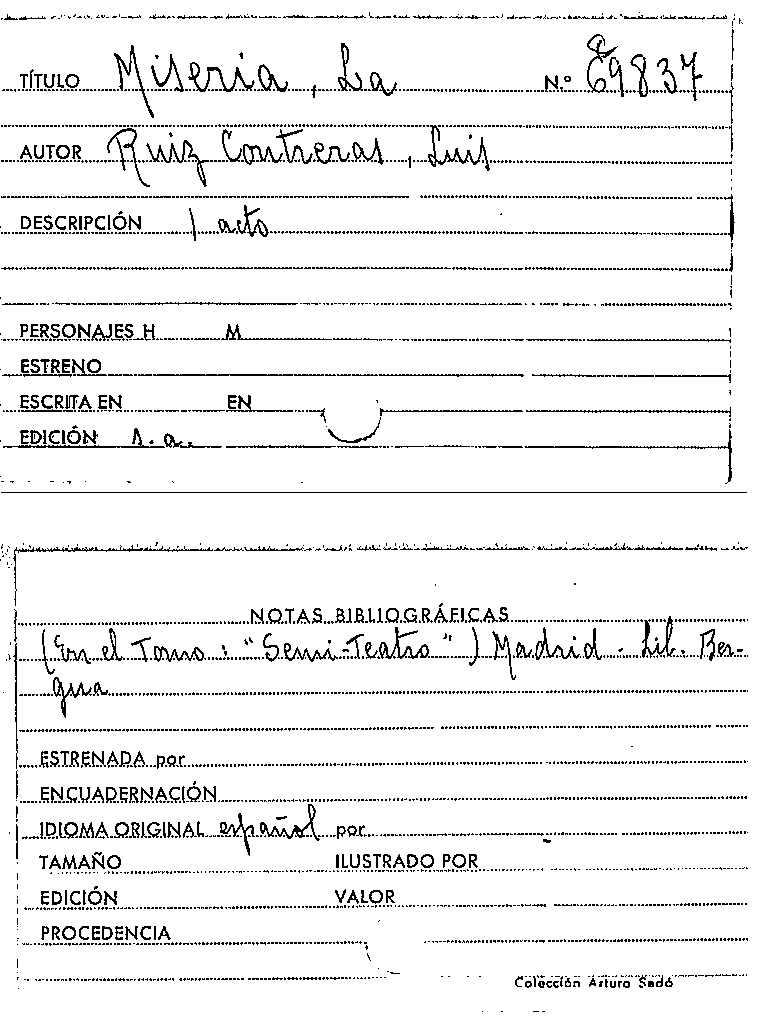 TÍTULO Miseria, La N.º 69837
AUTOR Ruiz Contreras, Luis
DESCRIPCIÓN 1 acto
PERSONAJES H M
ESTRENO
ESCRITA EN EN
EDICIÓN s.a.
NOTAS BIBLIOGRÁFICAS
(En el Tomo: "Semi-Teatro") Madrid - Lib. Ber-
gua
ESTRENADA por
ENCUADERNACIÓN
IDIOMA ORIGINAL español por
TAMAÑO ILUSTRADO POR
EDICIÓN VALOR
PROCEDENCIA
Colección Arturo Sedó